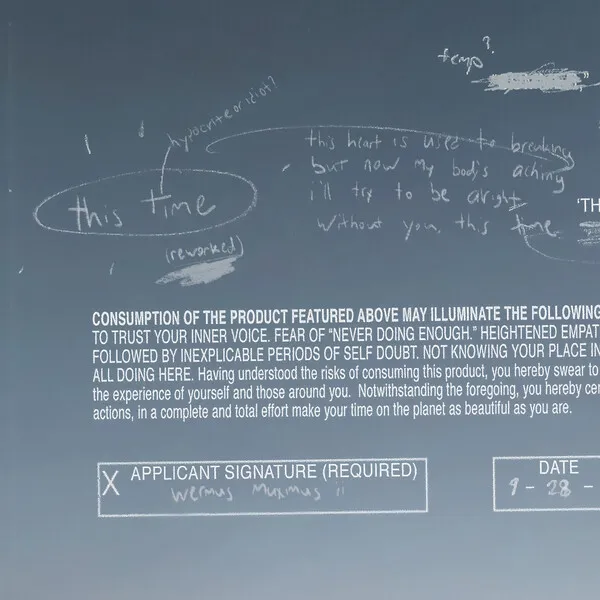 temp?
hypocrite or idiot?
this heart is used to breaking
but now my body's aching
i'll try to be alright
without you, this time
this time
(reworked)
'TH
CONSUMPTION OF THE PRODUCT FEATURED ABOVE MAY ILLUMINATE THE FOLLOWING
TO TRUST YOUR INNER VOICE. FEAR OF "NEVER DOING ENOUGH." HEIGHTENED EMPAT
FOLLOWED BY INEXPLICABLE PERIODS OF SELF DOUBT. NOT KNOWING YOUR PLACE IN
ALL DOING HERE. Having understood the risks of consuming this product, you hereby swear to
the experience of yourself and those around you. Notwithstanding the foregoing, you hereby cer
actions, in a complete and total effort make your time on the planet as beautiful as you are.
X APPLICANT SIGNATURE (REQUIRED)
DATE
9 - 28 -